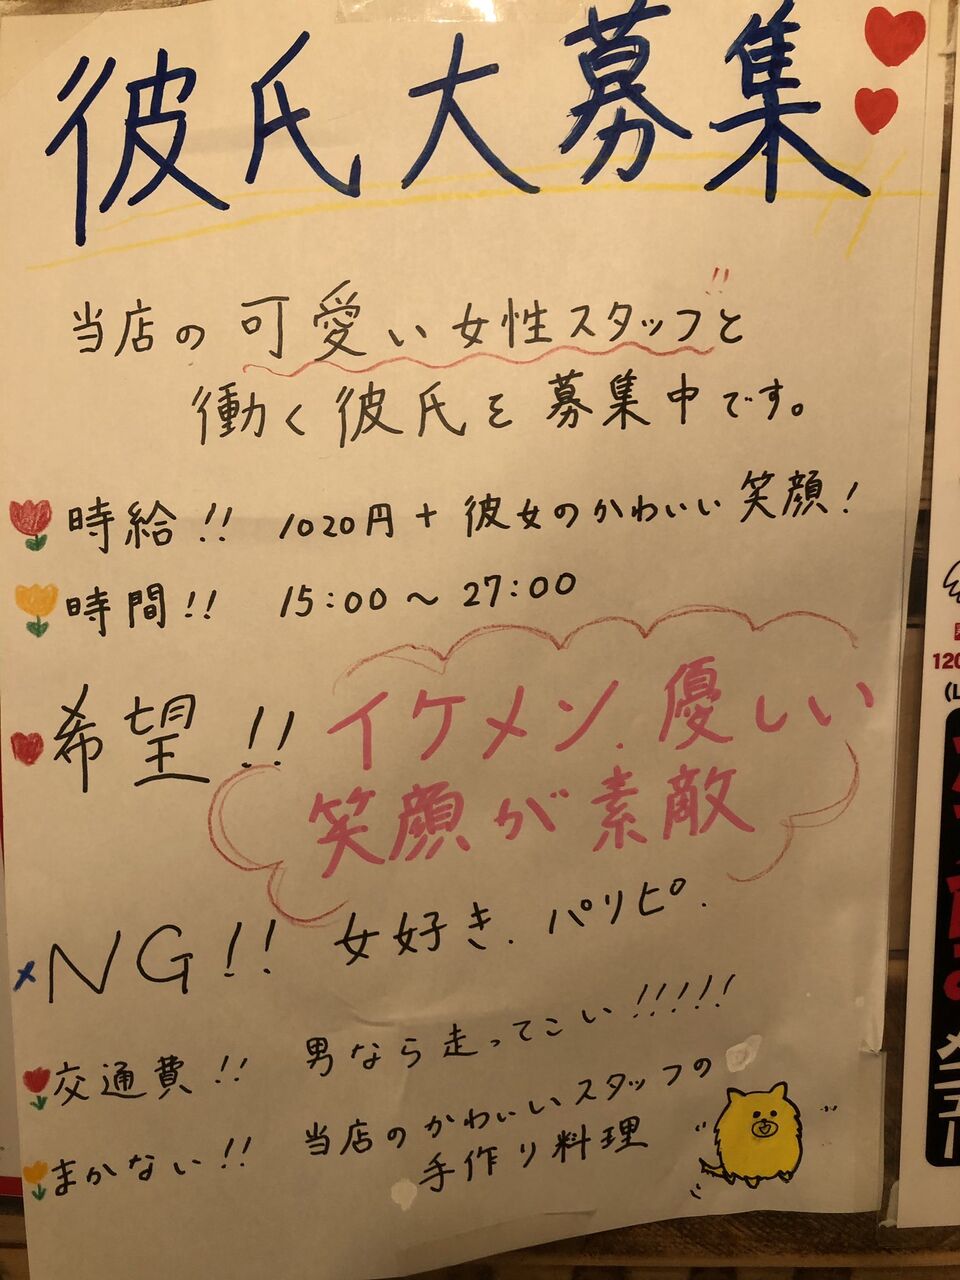 彼氏大募集
当店の可愛い女性スタッフと
働く彼氏を募集中です。
時給!! 1020円+彼女のかわいい笑顔!
時間!! 15:00〜27:00
希望!! イケメン.優しい
笑顔が素敵
NG!! 女好き.パリピ.
交通費!! 男なら走ってこい!!!!!
まかない!! 当店のかわいいスタッフの
手作り料理
120
メニュー